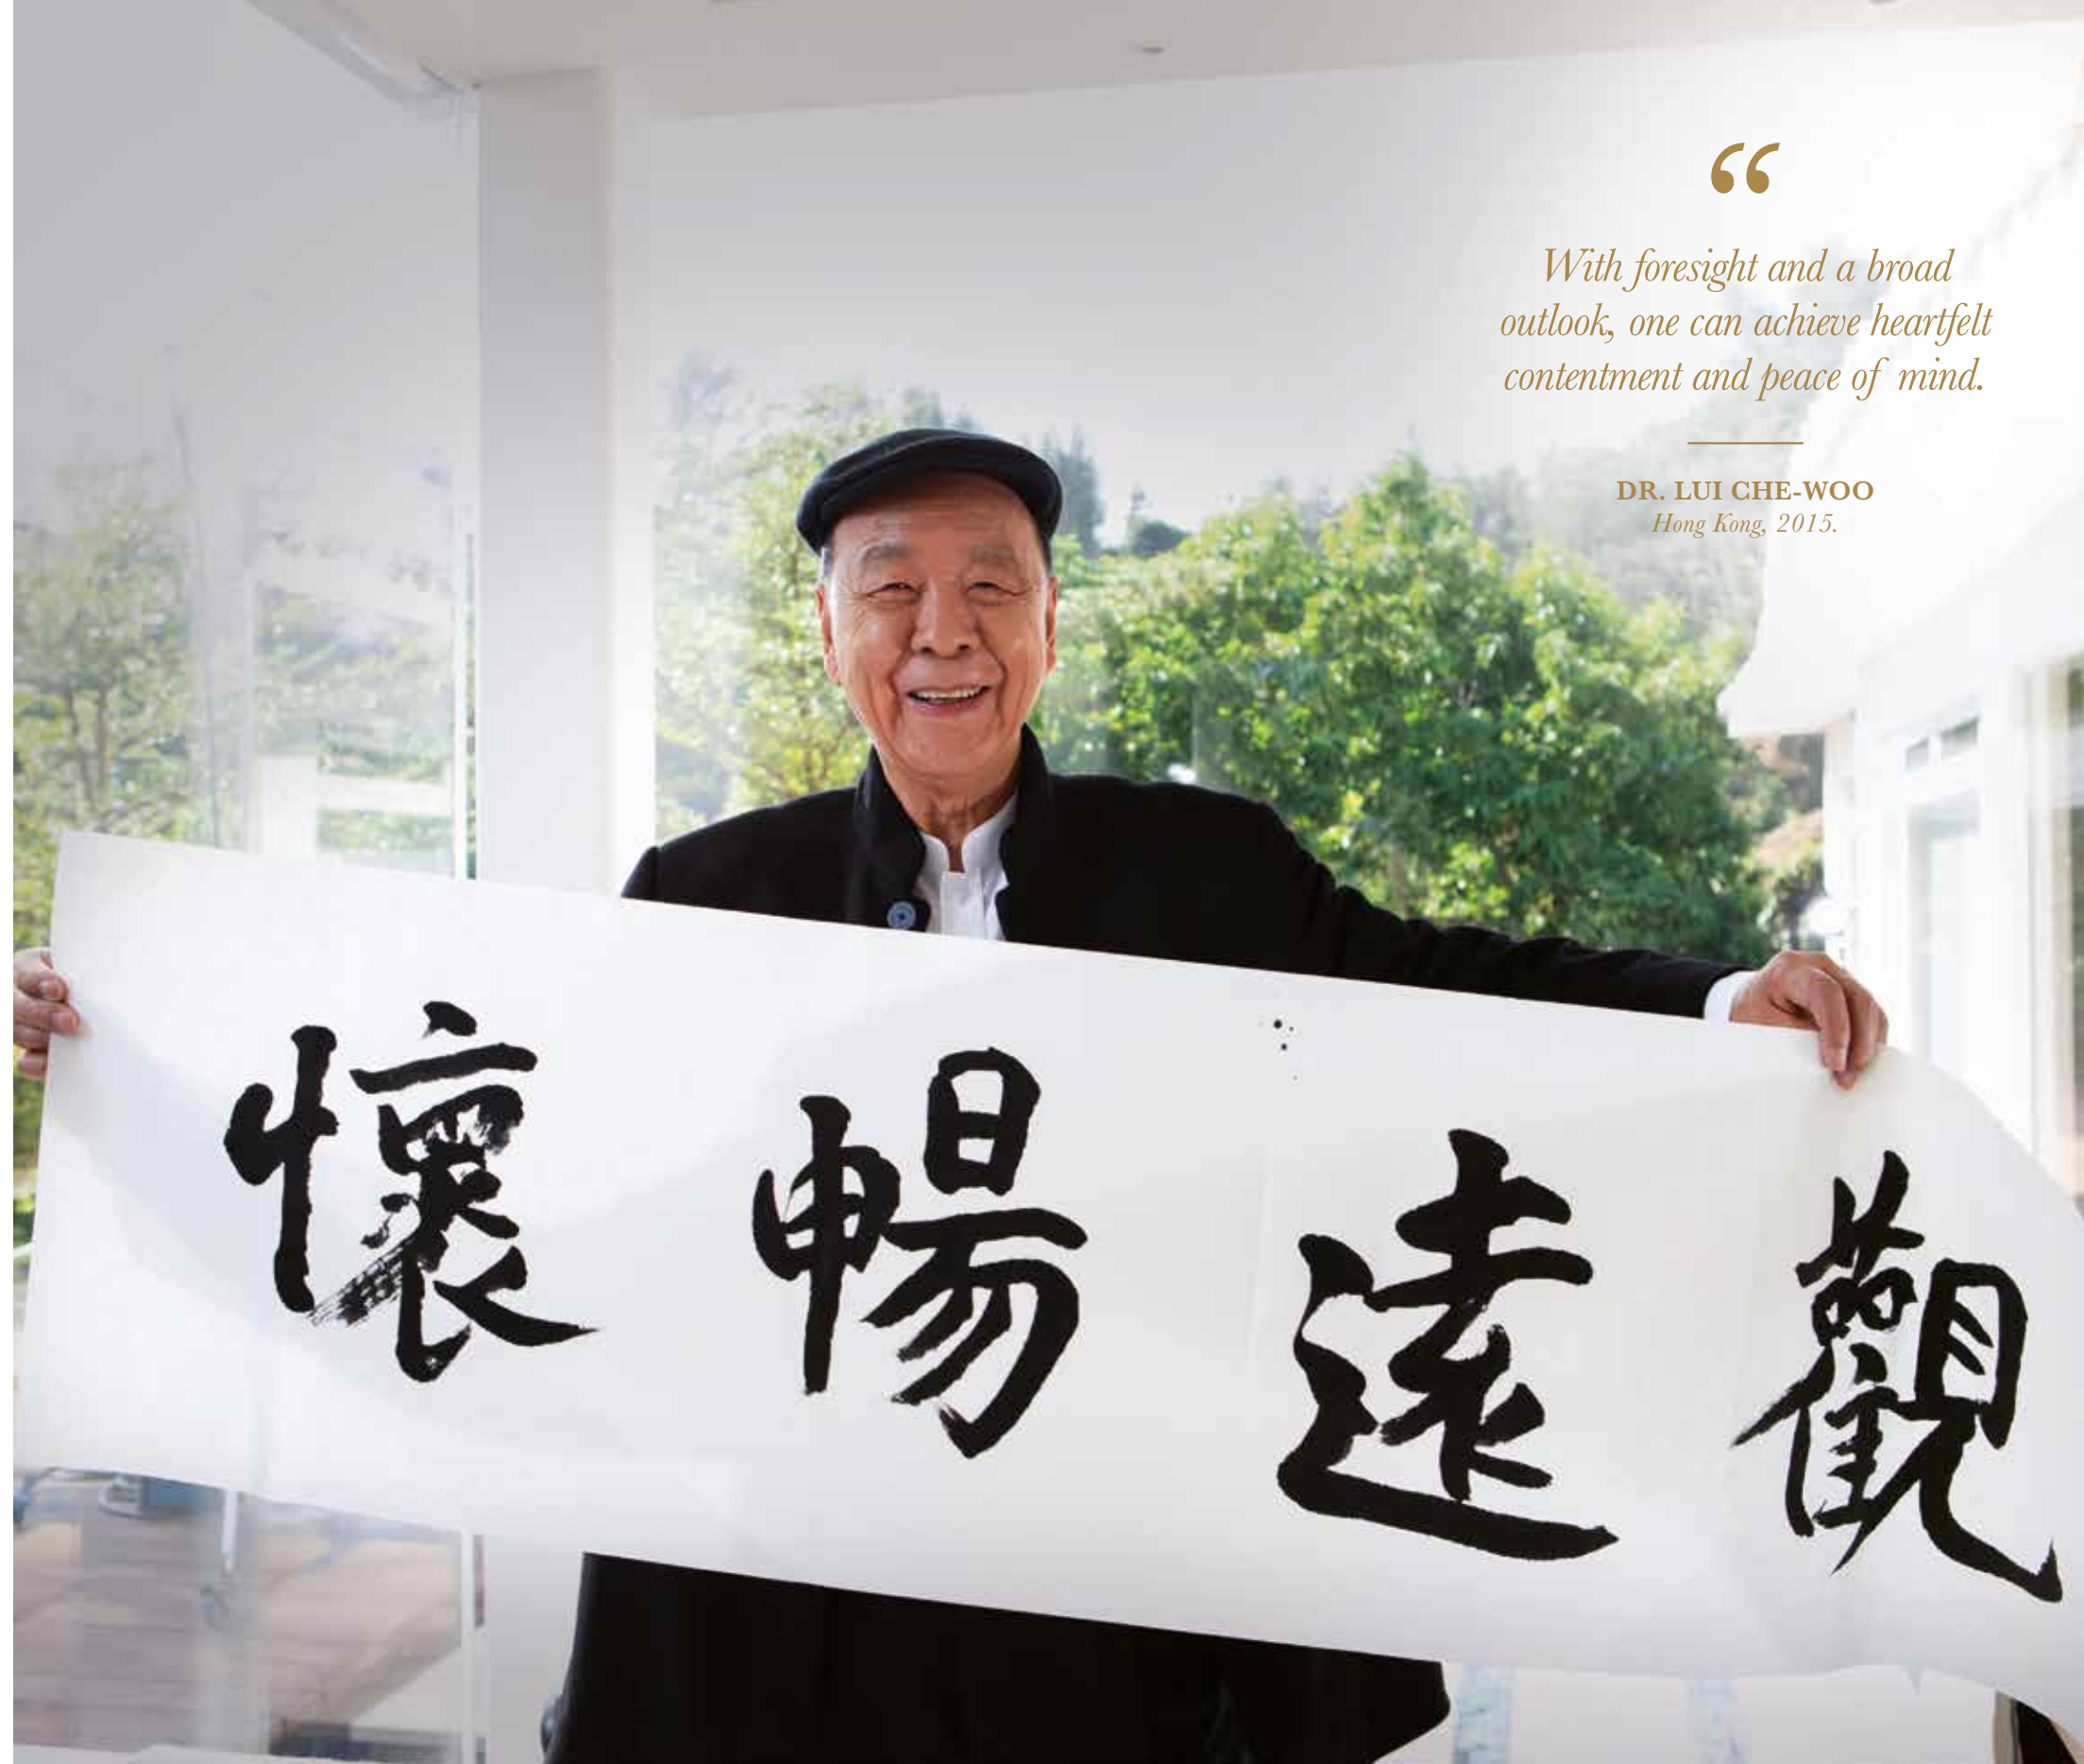 “
With foresight and a broad
outlook, one can achieve heartfelt
contentment and peace of mind.
DR. LUI CHE-WOO
Hong Kong, 2015.
觀遠暢懷